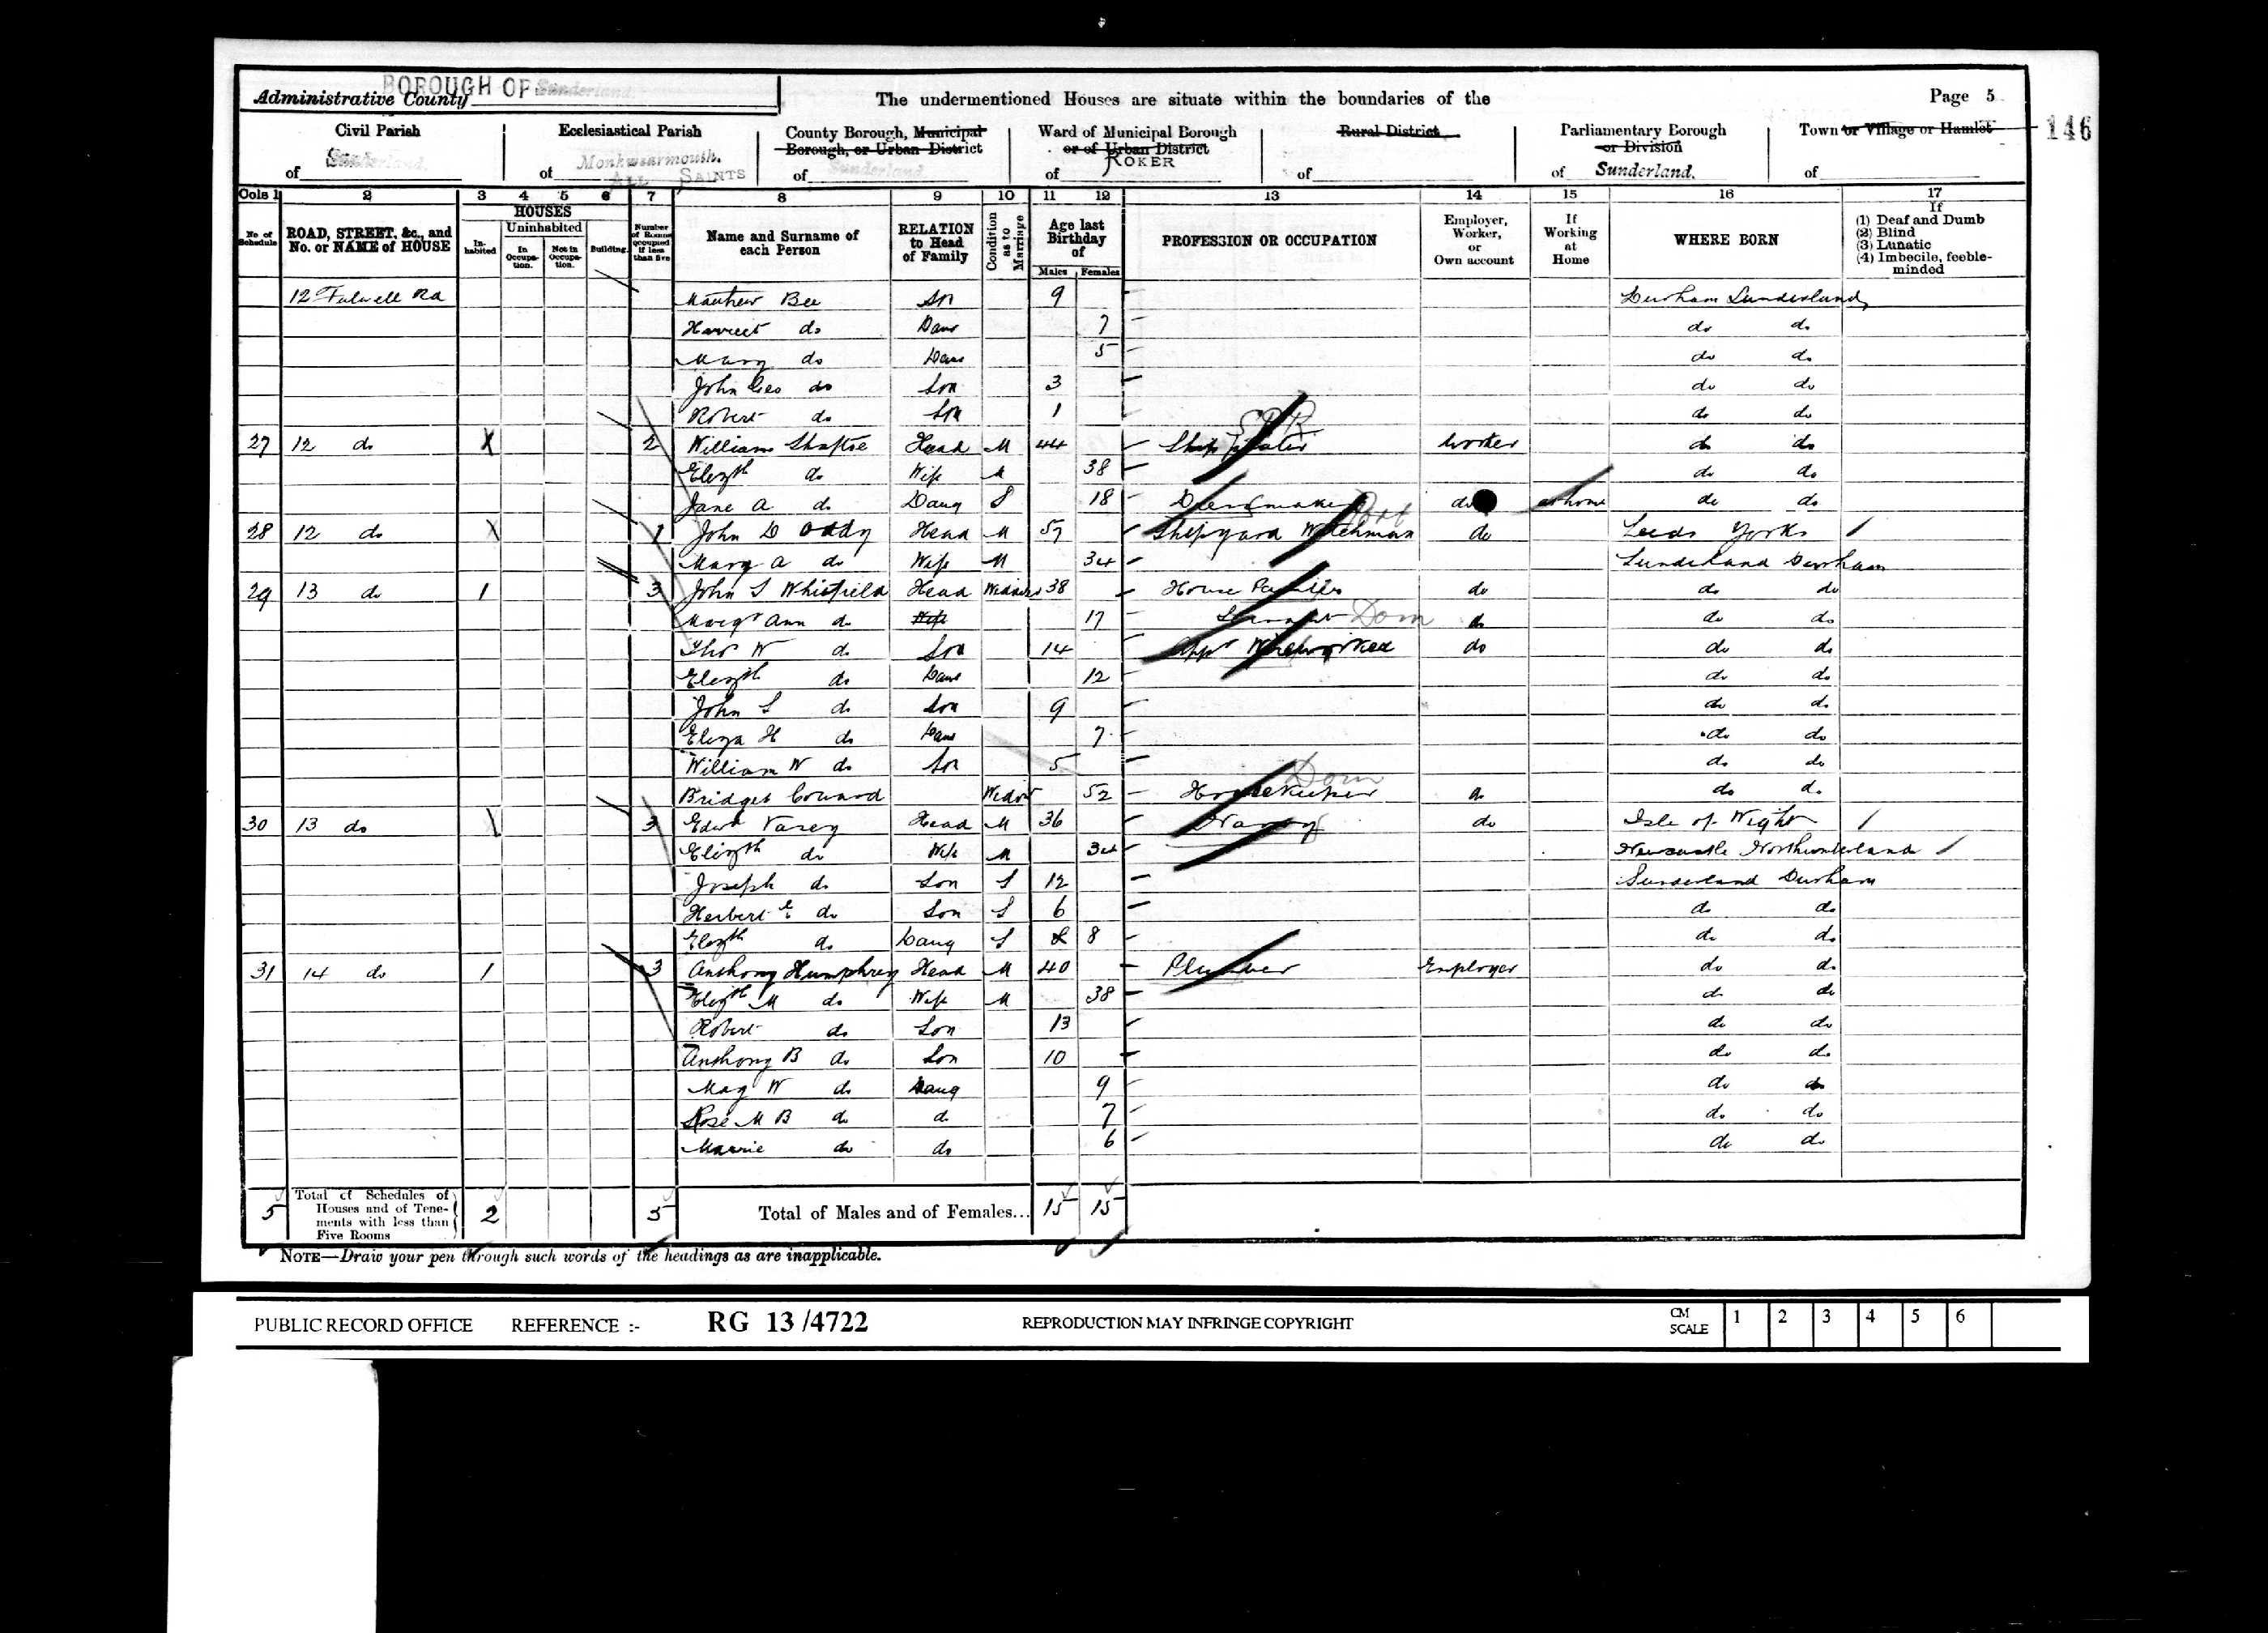 BOROUGH OF Sunderland.
Administrative County
The undermentioned Houses are situate within the boundaries of the
Page 5
146
Civil Parish of Sunderland.
Ecclesiastical Parish of Monkwearmouth. ALL SAINTS
County Borough, Municipal Borough, or Urban District of Sunderland
Ward of Municipal Borough or of Urban District of ROKER
Rural District of
Parliamentary Borough or Division of Sunderland.
Town or Village or Hamlet of
Cols 1 2 3 4 5 6 7 8 9 10 11 12 13 14 15 16 17
No of Schedule
ROAD, STREET, &c., and No. or NAME of HOUSE
HOUSES
In-habited
Uninhabited
In Occupa-tion.
Not in Occupa-tion.
Building.
Number of Rooms occupied if less than five
Name and Surname of each Person
RELATION to Head of Family
Condition as to Marriage
Age last Birthday of
Males Females
PROFESSION OR OCCUPATION
Employer, Worker, or Own account
If Working at Home
WHERE BORN
If
(1) Deaf and Dumb
(2) Blind
(3) Lunatic
(4) Imbecile, feeble-minded
12 Fulwell Rd Mathew Bee Son 9 Durham Sunderland
Harriet do Daur 7 do do
Mary do Daur 5 do do
John Geo do Son 3 do do
Robert do Son 1 do do
27 12 do X 2 William Shaftoe Head M 44 Ship Worker do do
Elizth do Wife M 38 do do
Jane A do Daug S 18 Dressmaker do at home do do
28 12 do X 1 John D Oddy Head M 57 Shipyard Watchman do Leeds Yorks
Mary A do Wife M 34 Sunderland Durham
29 13 do 1 3 John S Whitfield Head Widower 38 House Painter do do do
Margt Ann do Wife 17 Servant Dom do do do
Thos W do Son 14 Appt Wireworker do do do
Elizth do Daur 12 do do
John S do Son 9 do do
Eliza H do Daur 7 do do
William W do Son 5 do do
Bridget Coward Widow 52 Housekeeper Dom do do do
30 13 do 3 Edwd Varey Head M 36 do Isle of Wight
Elizth do Wife M 34 Newcastle Northumberland
Joseph do Son S 12 Sunderland Durham
Herbert E do Son S 6 do do
Elizth do Daug S 8 do do
31 14 do 1 3 Anthony Humphrey Head M 40 Plumber Employer do do
Elizth M do Wife M 38 do do
Robert do Son 13 do do
Anthony B do Son 10 do do
May W do Daug 9 do do
Rose M B do do 7 do do
Marrie do do 6 do do
5 Total of Schedules of Houses and of Tene-ments with less than Five Rooms 2 5 Total of Males and of Females... 15 15
NOTE—Draw your pen through such words of the headings as are inapplicable.
PUBLIC RECORD OFFICE REFERENCE :- RG 13 /4722 REPRODUCTION MAY INFRINGE COPYRIGHT CM SCALE 1 2 3 4 5 6